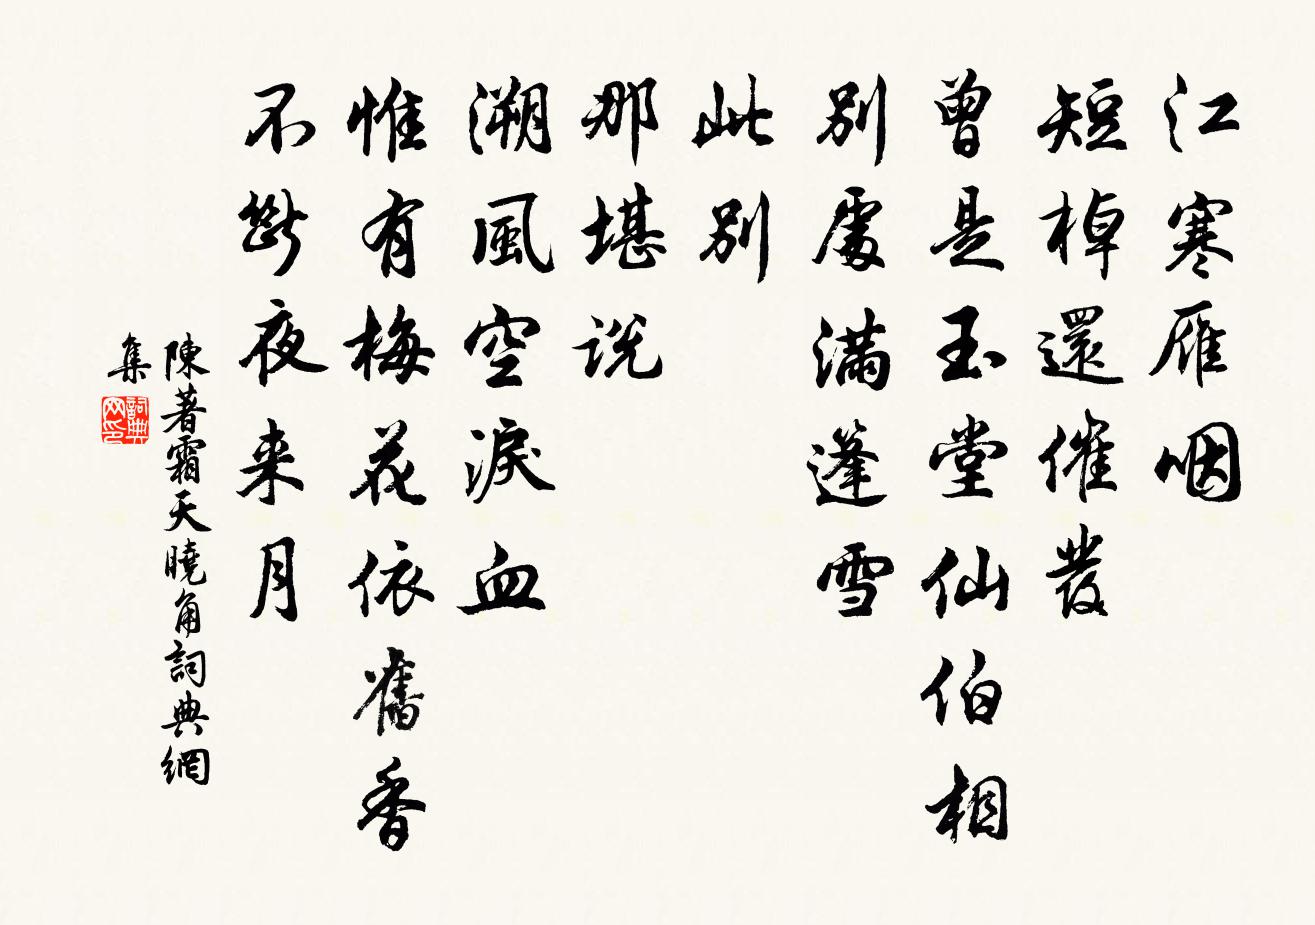 江寒雁咽
短棹還催發
曾是玉堂仙伯相
別處滿蓬雪
此別
那堪說
溯風空淚血
惟有梅花依舊香
不斷夜来月
陳著霜天曉角詞典網
集
詞典網印